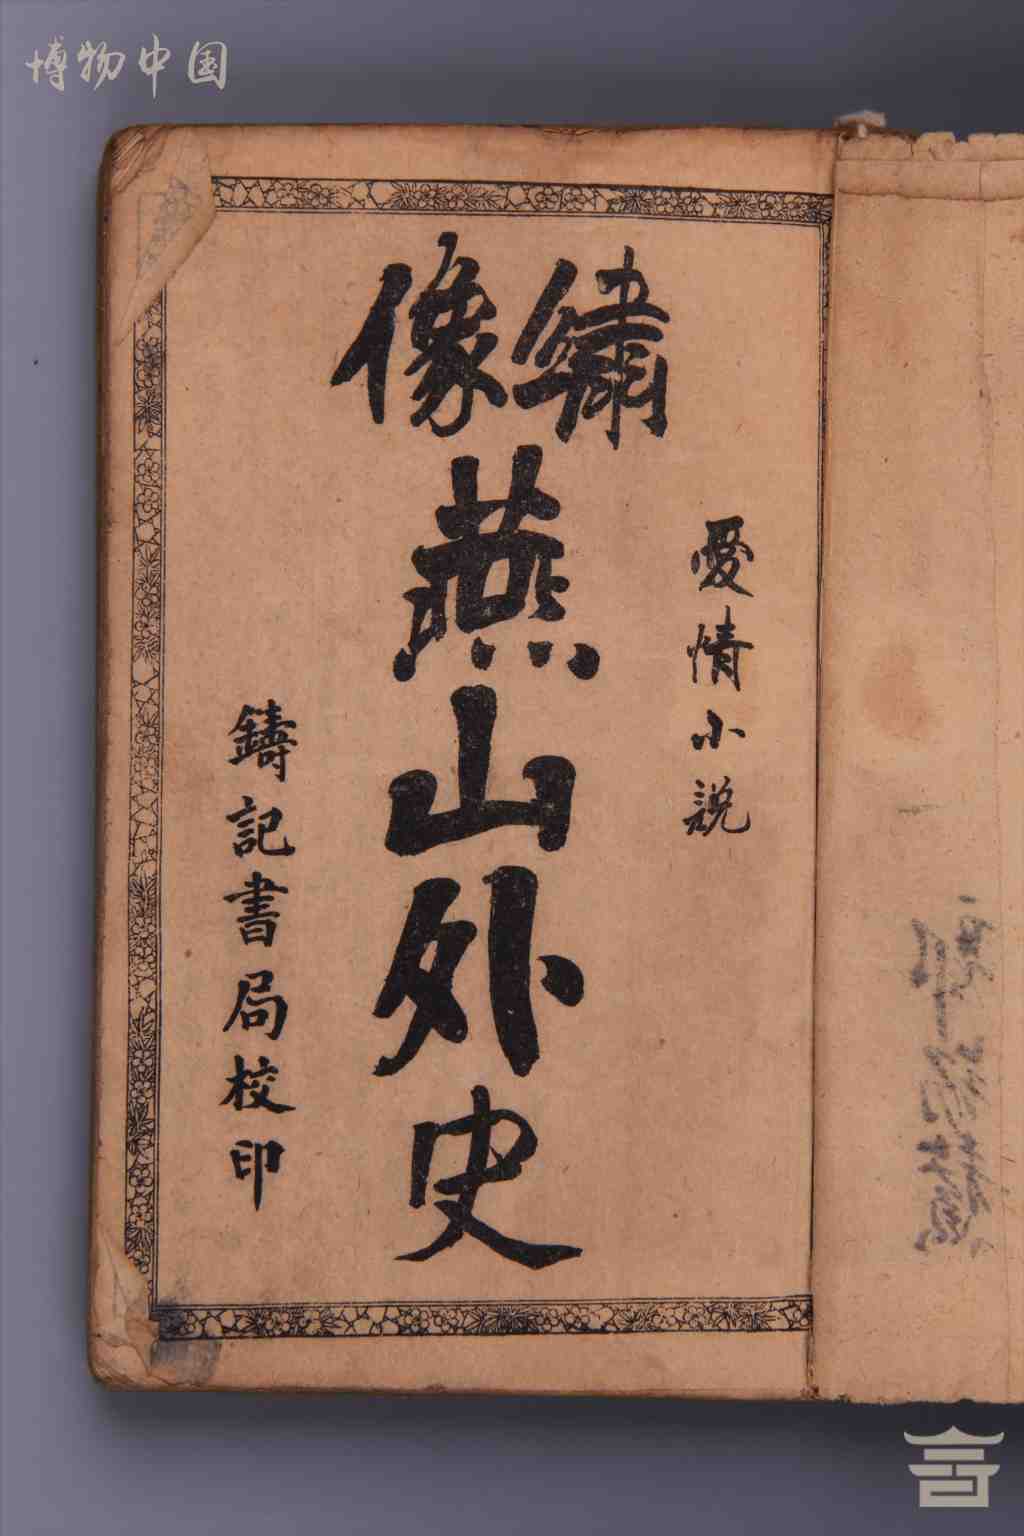 博物中国
愛情小説
繡像
燕山外史
鑄記書局校印